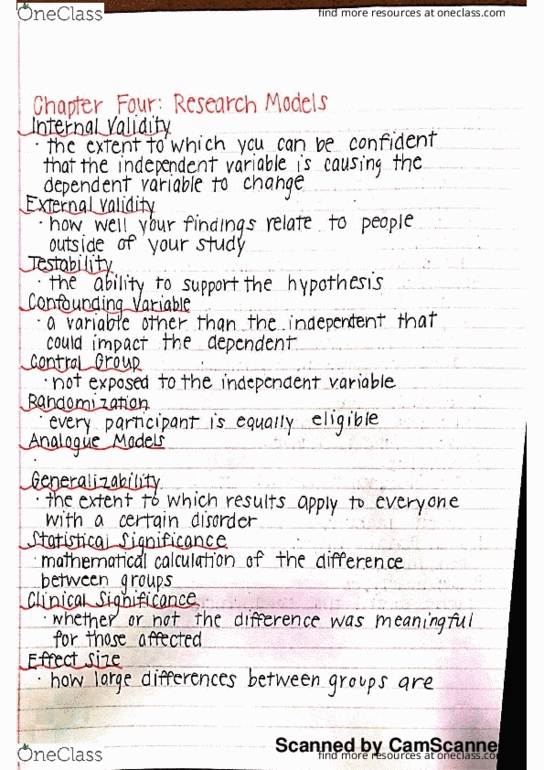 OneClass
find more resources at oneclass.com
Chapter Four: Research Models
Internal Validity
· the extent to which you can be confident
that the independent variable is causing the
dependent variable to change
External Validity
· how well your findings relate to people
outside of your study
Testability
· the ability to support the hypothesis
Confounding Variable
· a variable other than the independent that
could impact the dependent
Control Group
· not exposed to the independent variable
Randomization
· every participant is equally eligible
Analogue Models
·
Generalizability
· the extent to which results apply to everyone
with a certain disorder
Statistical Significance
· mathematical calculation of the difference
between groups
Clinical Significance
· whether or not the difference was meaningful
for those affected
Effect Size
· how large differences between groups are
Scanned by CamScanne
OneClass
find more resources at oneclass.com